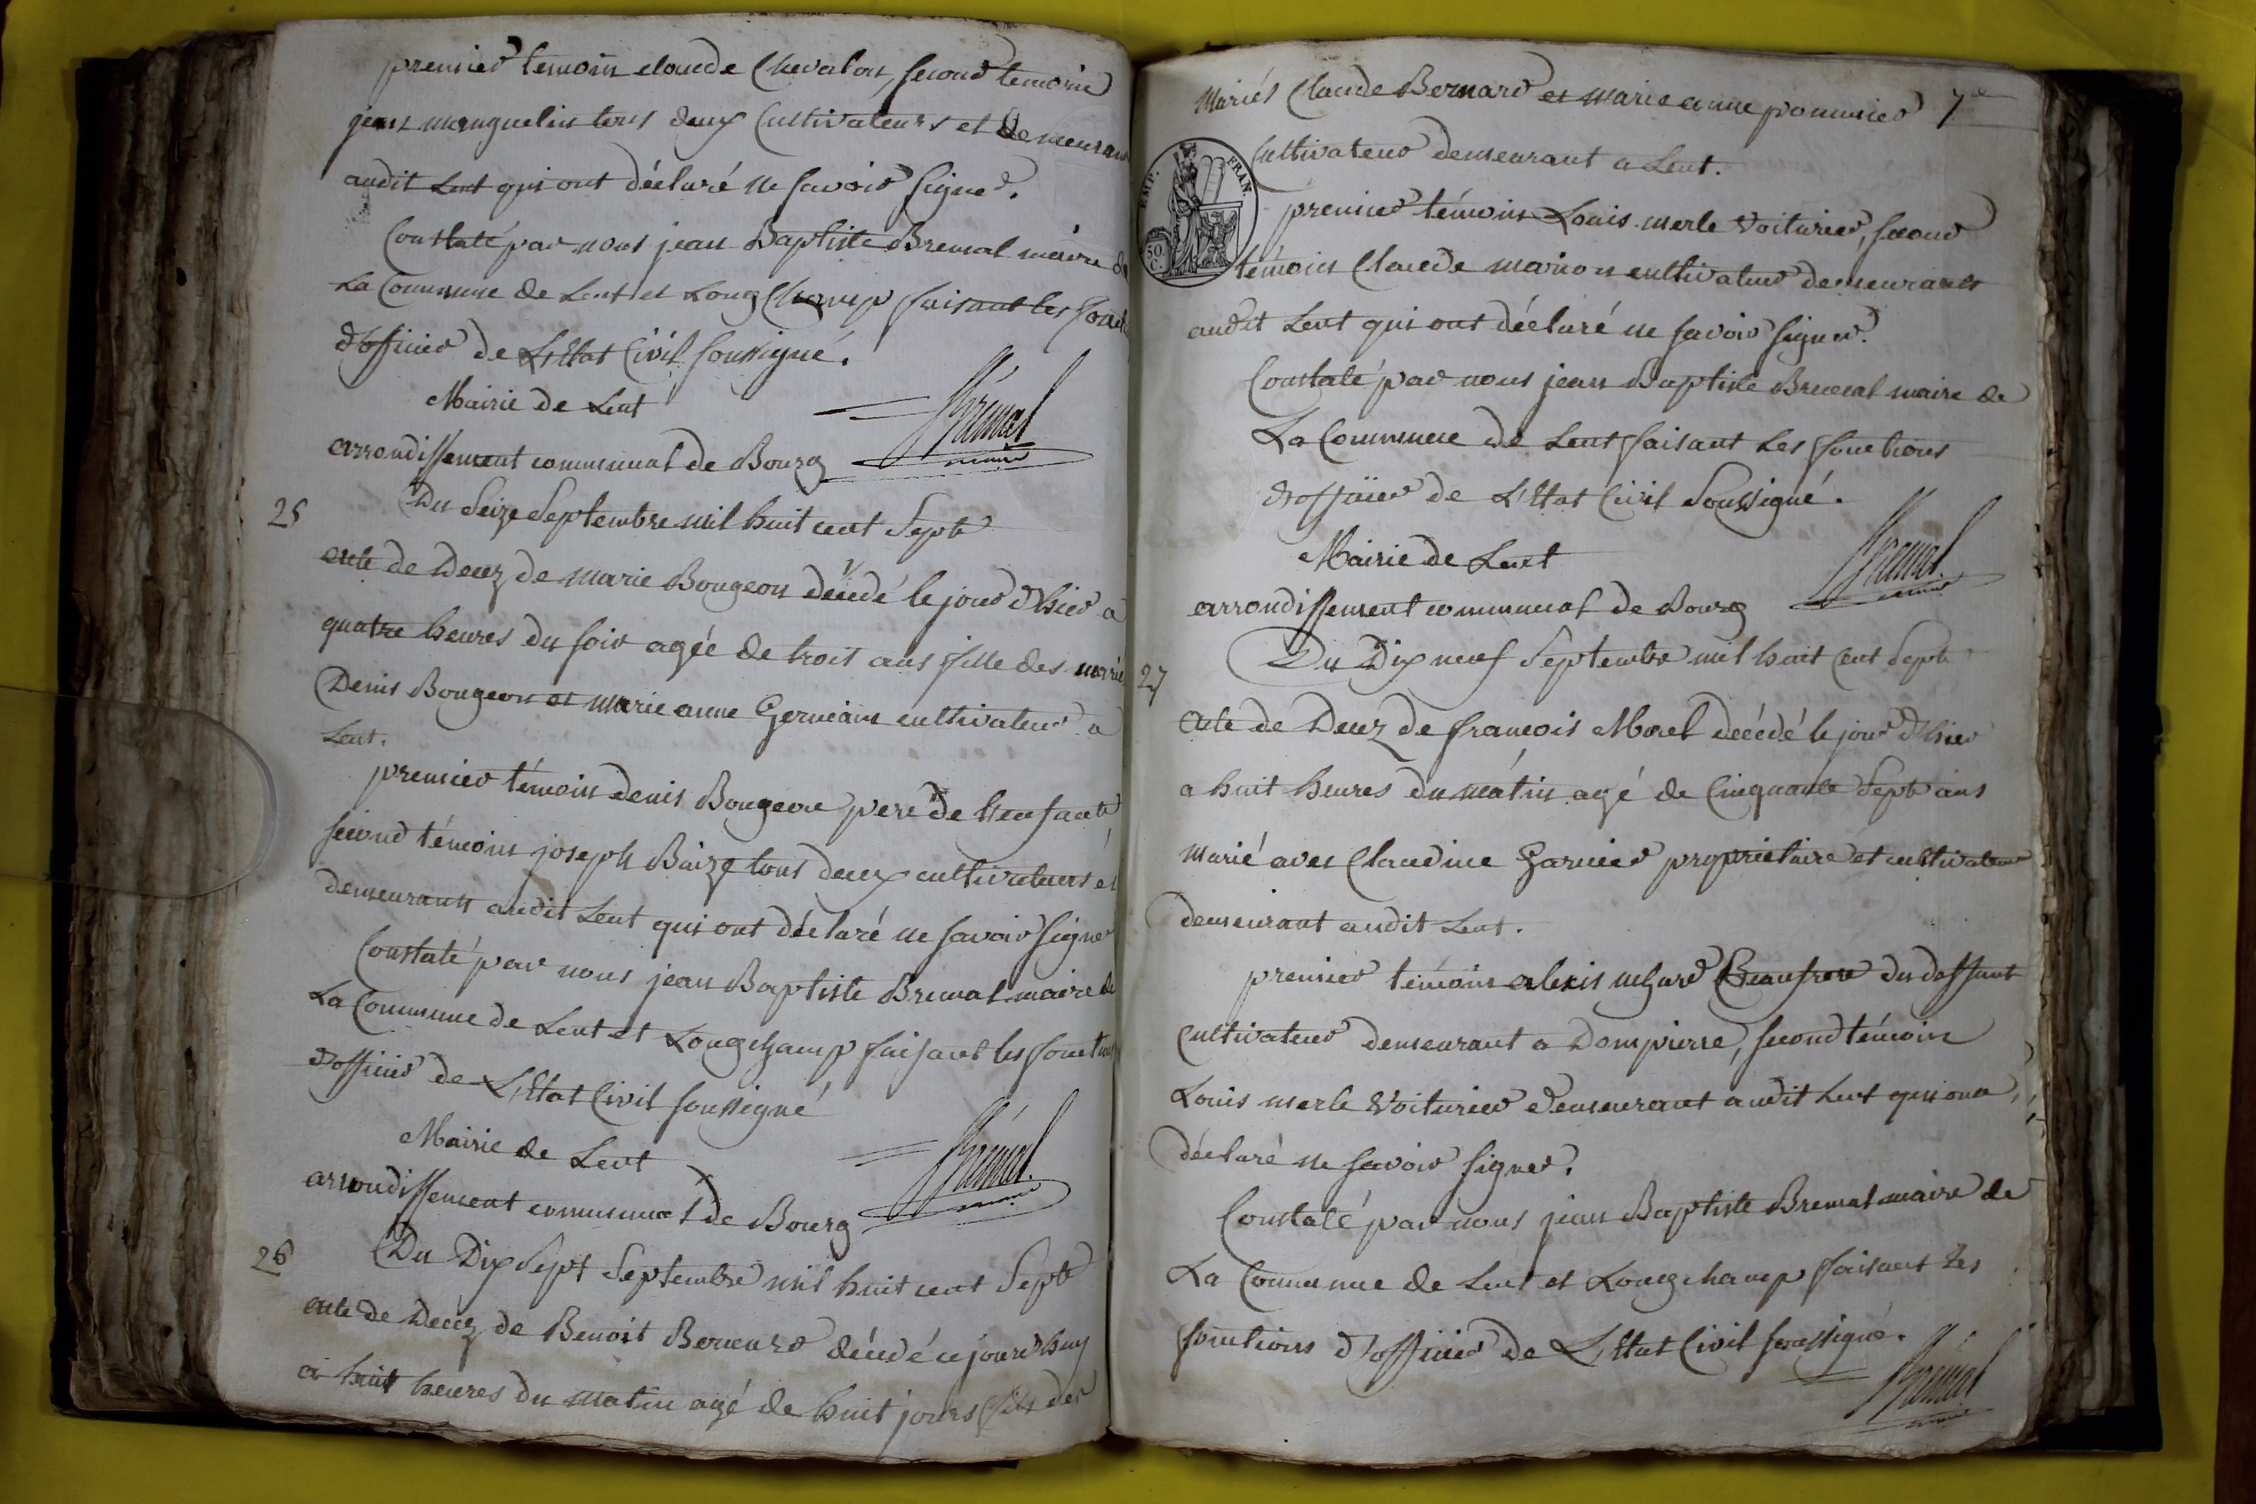 premier temoin claude Chevalon, second temoin
jean manguelin tous deux Cultivateurs et demeurant
audit Lent qui ont déclaré ne savoir signer.
Constaté par nous jean Baptiste Bremal maire de
La Commune de Lent et Long Champ faisant les fonct
d'officier de L'Etat Civil soussigné.
Mairie de Lent
Brémal
maire
arrondissement communal de Bourg
25
Du Seize Septembre mil huit cent Sept
acte de Decez de marie Bougeon décédé le jour d'hier a
quatre heures du soir agée de troit ans fille des marié
Denis Bougeon et marie anne Germain cultivateur a
Lent.
premier témoin denis Bougeon pere de l'enfant
second témoin joseph Baize tous deux cultivateurs et
demeurants audit Lent qui ont déclaré ne savoir signer
Constaté par nous jean Baptiste Bremal maire de
La Commune de Lent et Longchamp faisant les fonctions
d'officier de L'Etat Civil soussigné
Mairie de Lent
Brémal
maire
arrondissement communal de Bourg
26
Du Dix Sept Septembre mil huit cent Sept
acte de Decez de Benoit Bernard décédé ce jourd'huy
a huit heures du matin agé de huit jours fils des
Mariés Claude Bernard et marie anne pommier 7e
Cultivateur demeurant a Lent.
EMP. FRAN.
50 C.
premier témoin Louis merle voiturier, second
témoin Claude marion cultivateur demeurants
audit Lent qui ont déclaré ne savoir signer.
Constaté par nous jean Baptiste Bremal maire de
La Commune de Lent faisant Les fonctions
d'officier de L'Etat Civil Soussigné.
Mairie de Lent
Bremal
maire
arrondissement communal de Bourg
27
Du Dix neuf Septembre mil huit Cent Sept
acte de Decez de françois Morel décédé le jour d'hier
a huit heures du matin agé de Cinquante Sept ans
Marié avec Claudine Garnier propriétaire et cultivateur
demeurant audit Lent.
premier témoin alexis beaufrere du deffunt
Cultivateur demeurant a Dompierre, second témoin
Louis merle Voiturier demeurant audit Lent qui ont
déclaré ne savoir signer.
Constaté par nous jean Baptiste Bremal maire de
La Commune de Lent et Longchamp faisant Les
fonctions d'officier de L'Etat Civil soussigné.
Brémal
maire